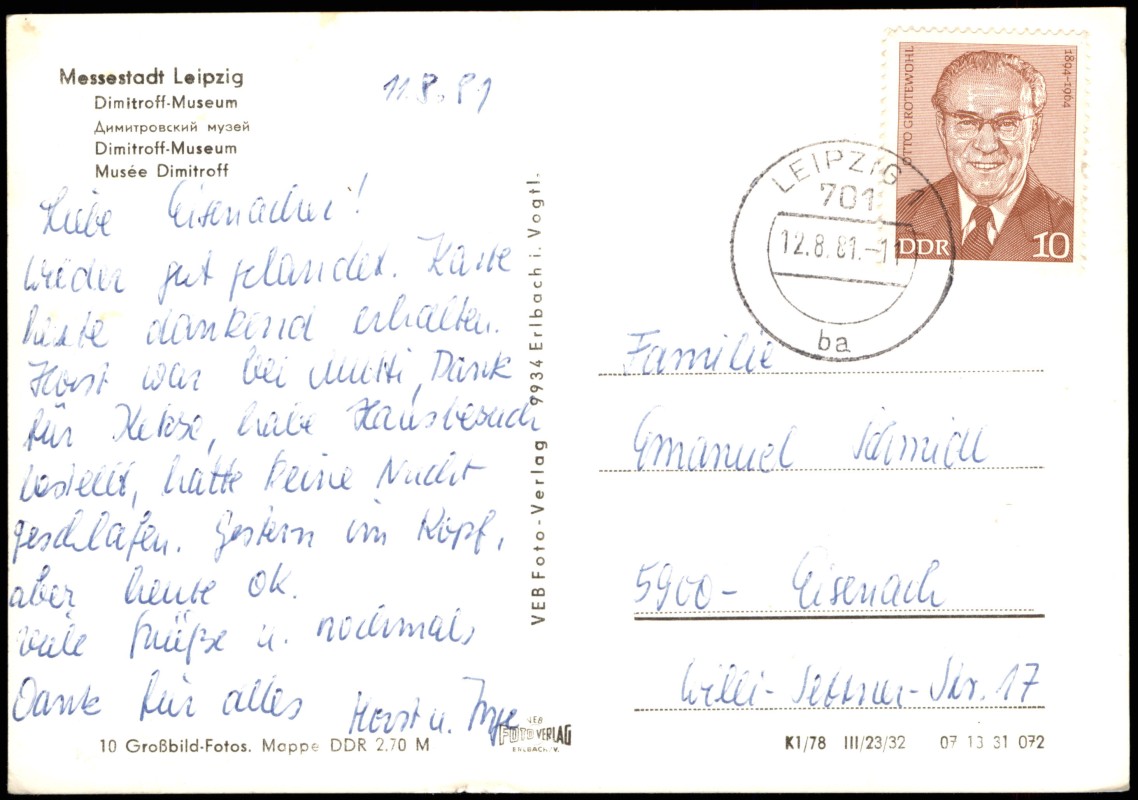 Messestadt Leipzig
Dimitroff-Museum
Димитровский музей
Dimitroff-Museum
Musée Dimitroff
11.8.81
Liebe Eisenacher!
Wieder gut gelandet. Karte
heute dankend erhalten.
Horst war bei Mutti, Dank
für Kekse, habe Hausbesuch
bestellt, hatte keine Nacht
geschlafen. Gestern im Kopf,
aber heute ok.
viele Grüße u. nochmals
Dank für alles Horst u. Inge
10 Großbild-Fotos. Mappe DDR 2.70 M
VEB Foto-Verlag 9934 Erlbach i. Vogtl.
VEB
FOTO VERLAG
ERLBACH/V.
OTTO GROTEWOHL
1894-1964
DDR 10
LEIPZIG 1
701
12.8.81.-11
ba
Familie
Emanuel Schmidt
5900- Eisenach
Willi-Str. 17
K1/78 III/23/32 07 13 31 072